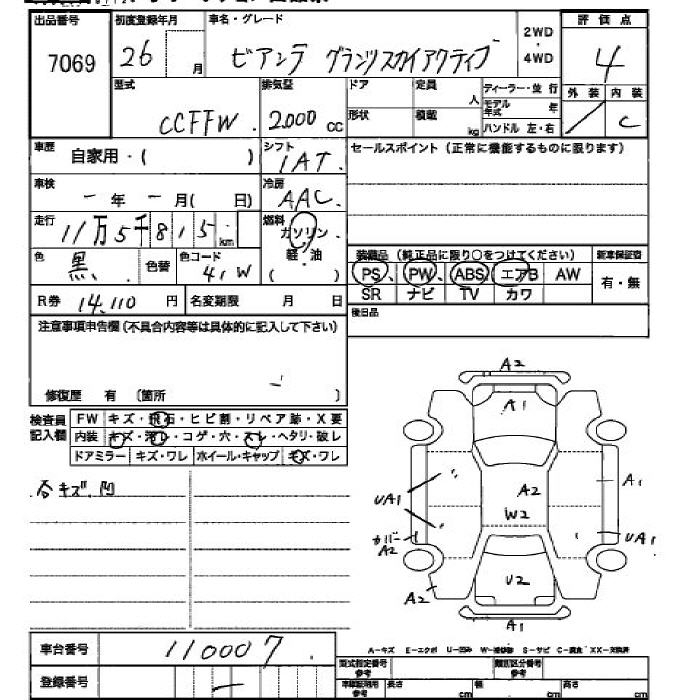 出品番号 初度登録年月 車名・グレード 2WD・4WD 評価点
7069 26 月 ビアンテ グランツスカイアクティブ 4
型式 CCFFW 排気量 2,000 cc ドア 形状 定員 人 積載 kg ディーラー・並行 モデル年式 年 ハンドル 左・右 外装 / 内装 C
車歴 自家用・( ) シフト IAT セールスポイント(正常に機能するものに限ります)
車検 - 年 - 月( 日) 冷房 AAC
走行 11万5千815 km 燃料 ガソリン 軽・油 ( )
色 黒 色替 色コード 41W 装備品(純正品に限り○をつけてください) 新車保証書
PS PW ABS エアB AW 有・無
SR ナビ TV カワ
R券 14,110 円 名変期限 月 日 後日品
注意事項申告欄(不具合内容等は具体的に記入して下さい)
修復歴 有 〔箇所 - 〕
検査員記入欄 FW キズ・飛石・ヒビ割・リペア跡・X要
内装 キズ・汚レ・コゲ・穴・スレ・ヘタリ・破レ
ドアミラー キズ・ワレ ホイール・キャップ キズ・ワレ
各キズ,凹
A2
A1
A1
A2
UA1
W2
カバー A2
UA1
U2
A2
A1
A-キズ E-エクボ U-凹み W-補修跡 S-サビ C-腐食 XX-交換済
車台番号 110007
登録番号 -
型式指定番号 参考 類別区分番号 参考
車検証明用 参考 長さ cm 幅 cm 高さ cm